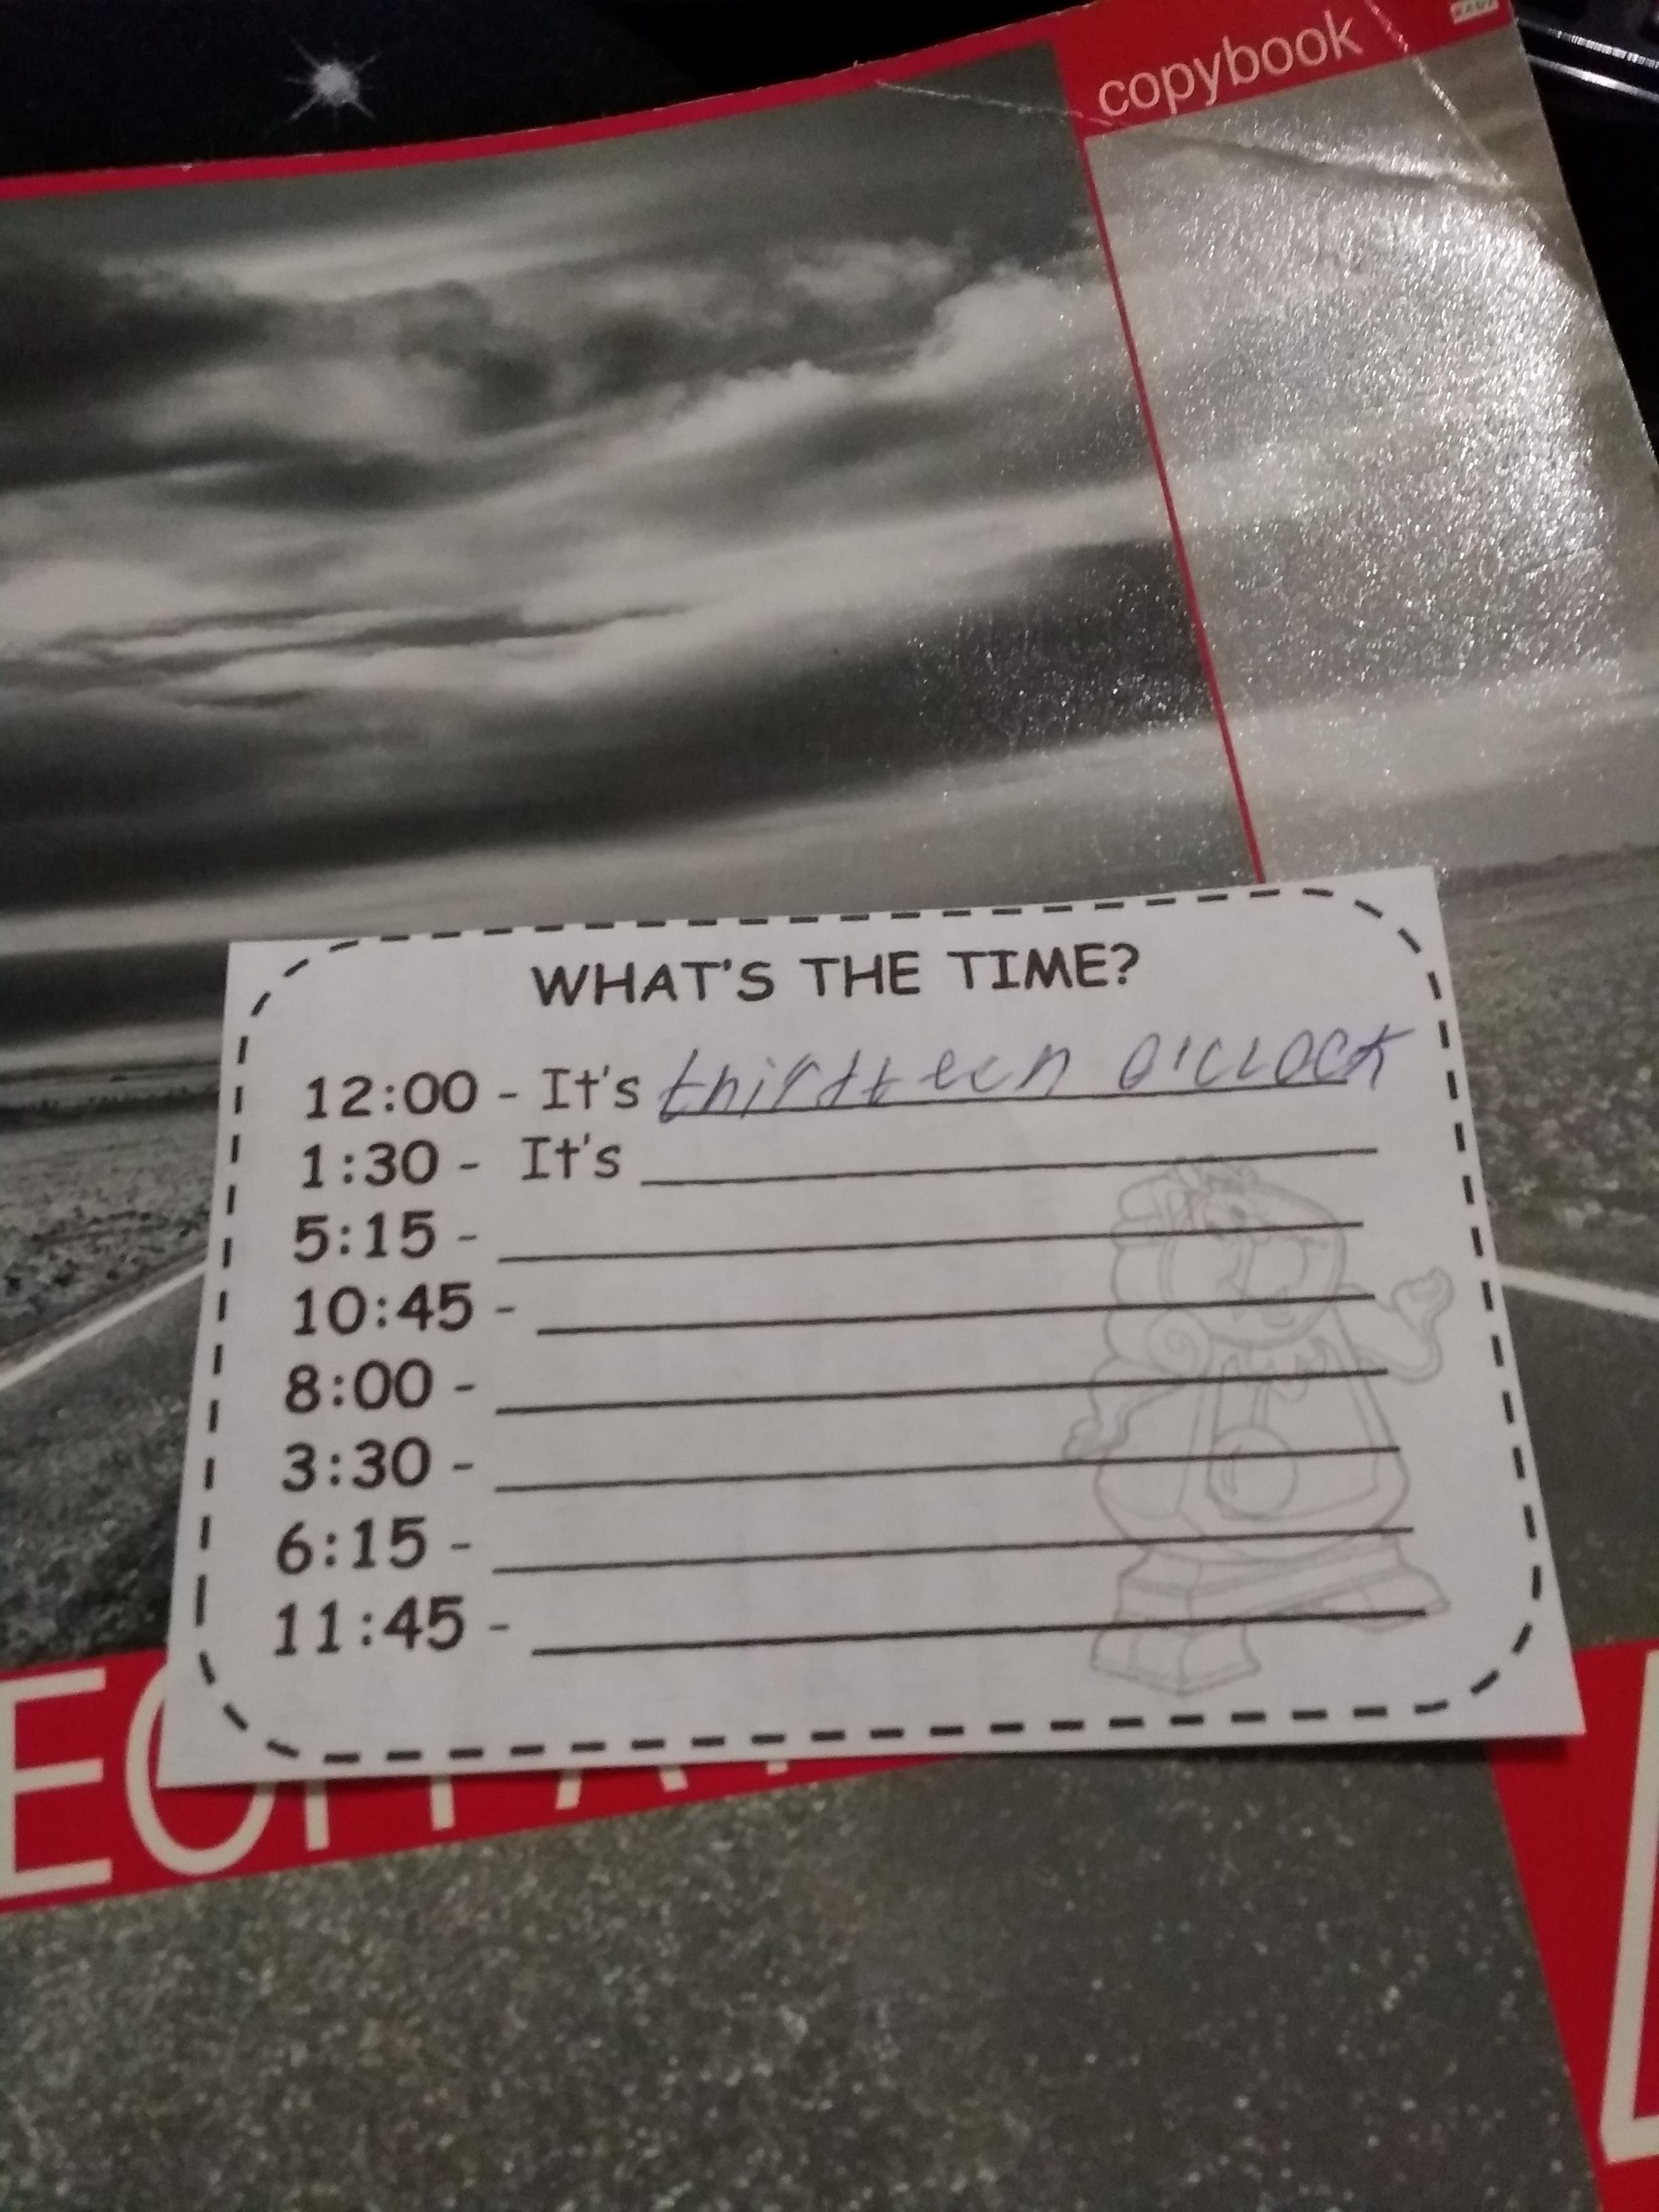 copybook
WHAT'S THE TIME?
12:00 - It's thirdteen o'clock
1:30 - It's
5:15 -
10:45 -
8:00 -
3:30 -
6:15 -
11:45 -